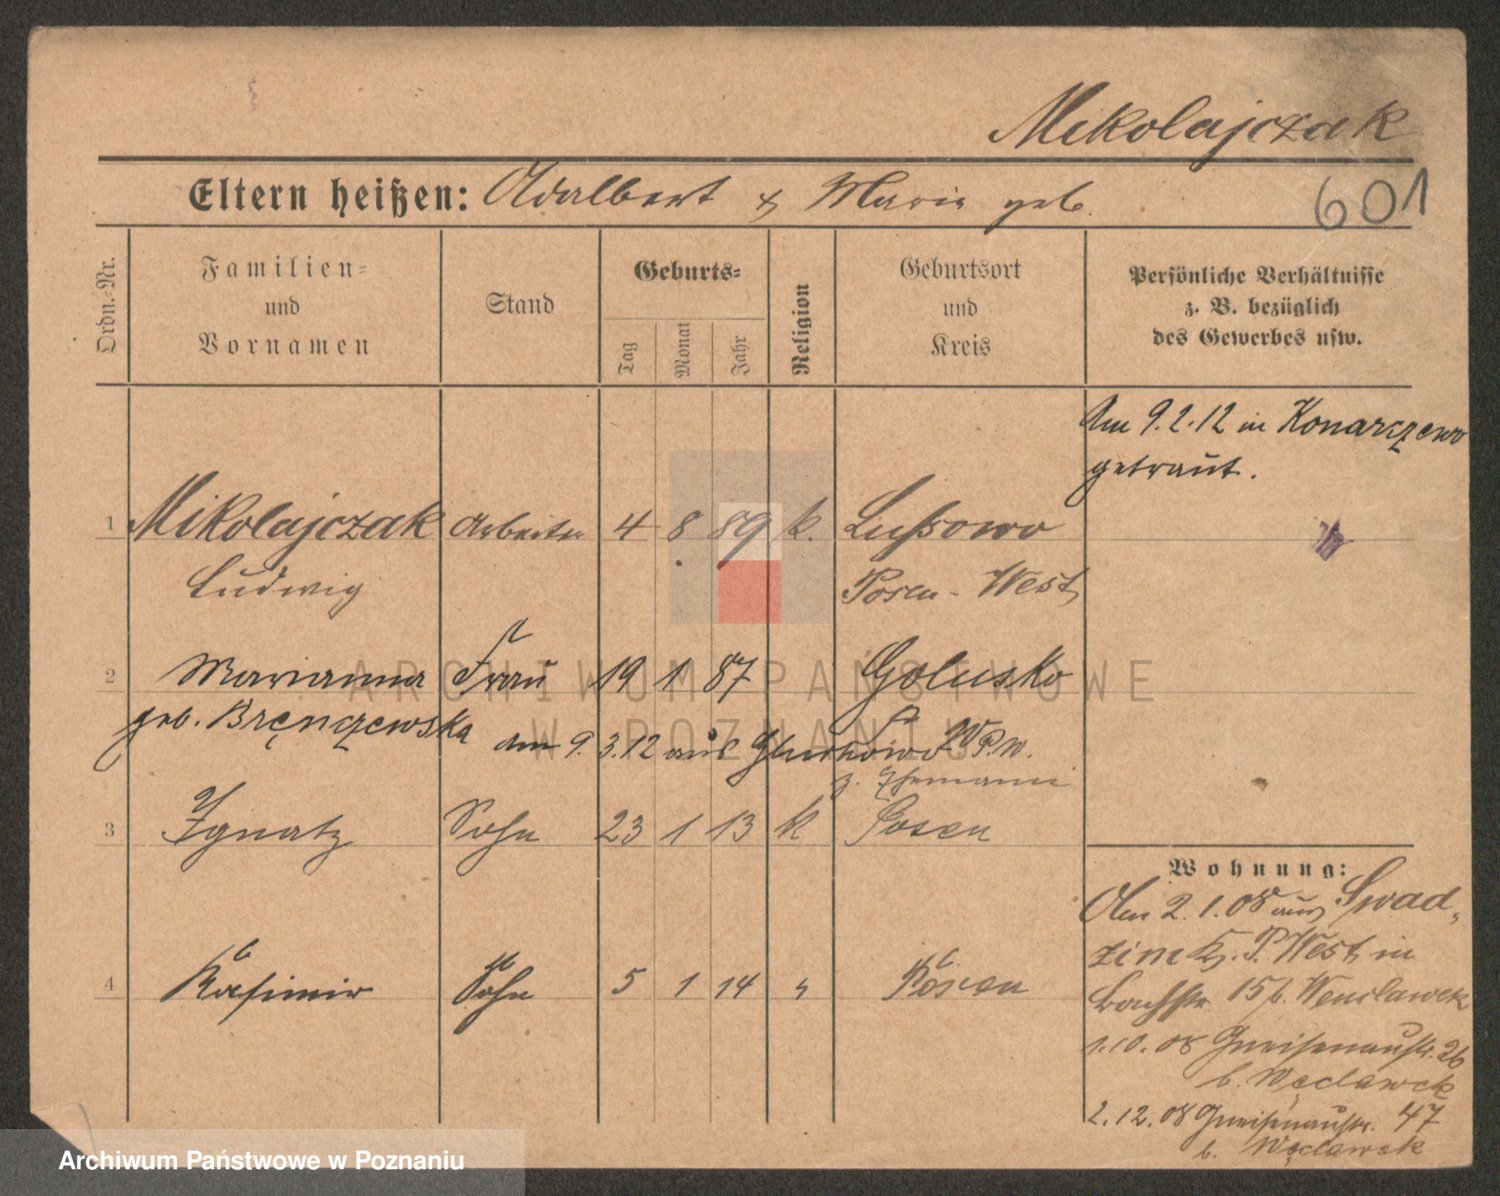 Mikolajczak
Eltern heißen: Adalbert & Marie geb.
601
Ordn.-Nr.
Familien-
und
Vornamen
Stand
Geburts-
Tag
Monat
Jahr
Religion
Geburtsort
und
Kreis
Persönliche Verhältnisse
z. B. bezüglich
des Gewerbes usw.
Am 9.2.12 in Konarzewo
getraut.
1 Mikolajczak Arbeiter 4 8 89 k. Lussowo
Ludwig Posen-West
2 Marianna Frau 19 1 87 Golusko
geb. Bręnczewska
am 9.3.12 aus P.W.
z. Ehemann
3 Ignatz Sohn 23 1 13 k Posen
4 Kasimir Sohn 5 1 14 " Posen
Wohnung:
Am 2.1.08 aus Swad-
zim Kr. P. West in
Bachstr. 15 b. Wenclawek
1.10.08 Gneisenaustr. 26
b. Węclawek
2.12.08 Gneisenaustr. 47
b. Węclawek
ARCHIWUM PAŃSTWOWE
W POZNANIU
Archiwum Państwowe w Poznaniu